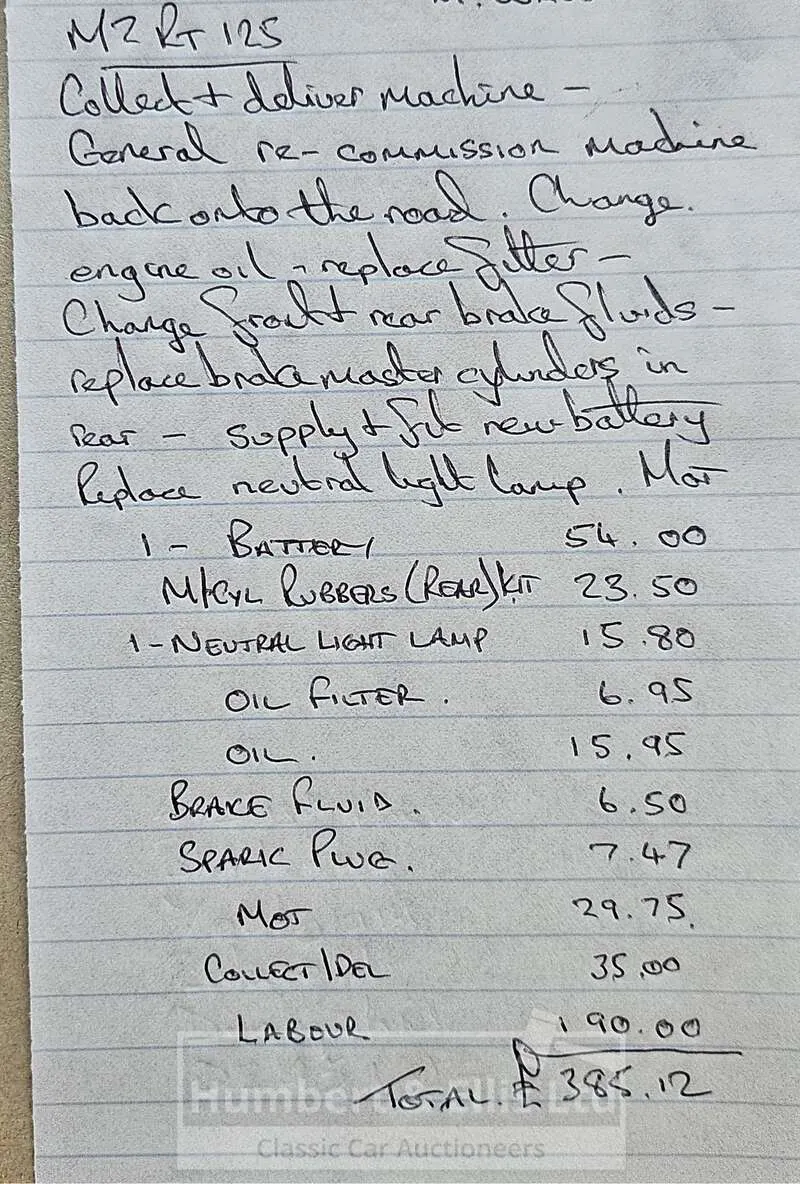 MZ RT 125
Collect + deliver machine -
General re-commission machine
back onto the road. Change.
engine oil - replace filter -
Change front + rear brake fluids -
replace brake master cylinders in
rear - supply + fit new battery
Replace neutral light lamp. MOT
1 - BATTERY 54.00
M/CYL RUBBERS (REAR) KIT 23.50
1 - NEUTRAL LIGHT LAMP 15.80
OIL FILTER. 6.95
OIL. 15.95
BRAKE FLUID. 6.50
SPARK PLUG. 7.47
MOT 29.75.
COLLECT/DEL 35.00
LABOUR 190.00
TOTAL. £385.12
Classic Car Auctioneers